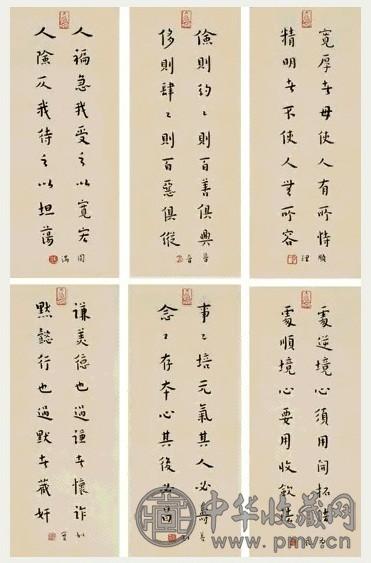 寬厚者毋使人有所恃
精明者不使人無所容
儉則約〻則百善俱興
侈則肆〻則百惡俱縱
人褊急我受之以寬宏
人險仄我待之以坦蕩
處逆境心須用開拓法
處順境心要用收斂法
事〻培元氣其人必壽
念〻存本心其後必昌
謙美德也過謙者懷詐
默懿行也過默者藏奸
中华收藏网
www.pmv.cn